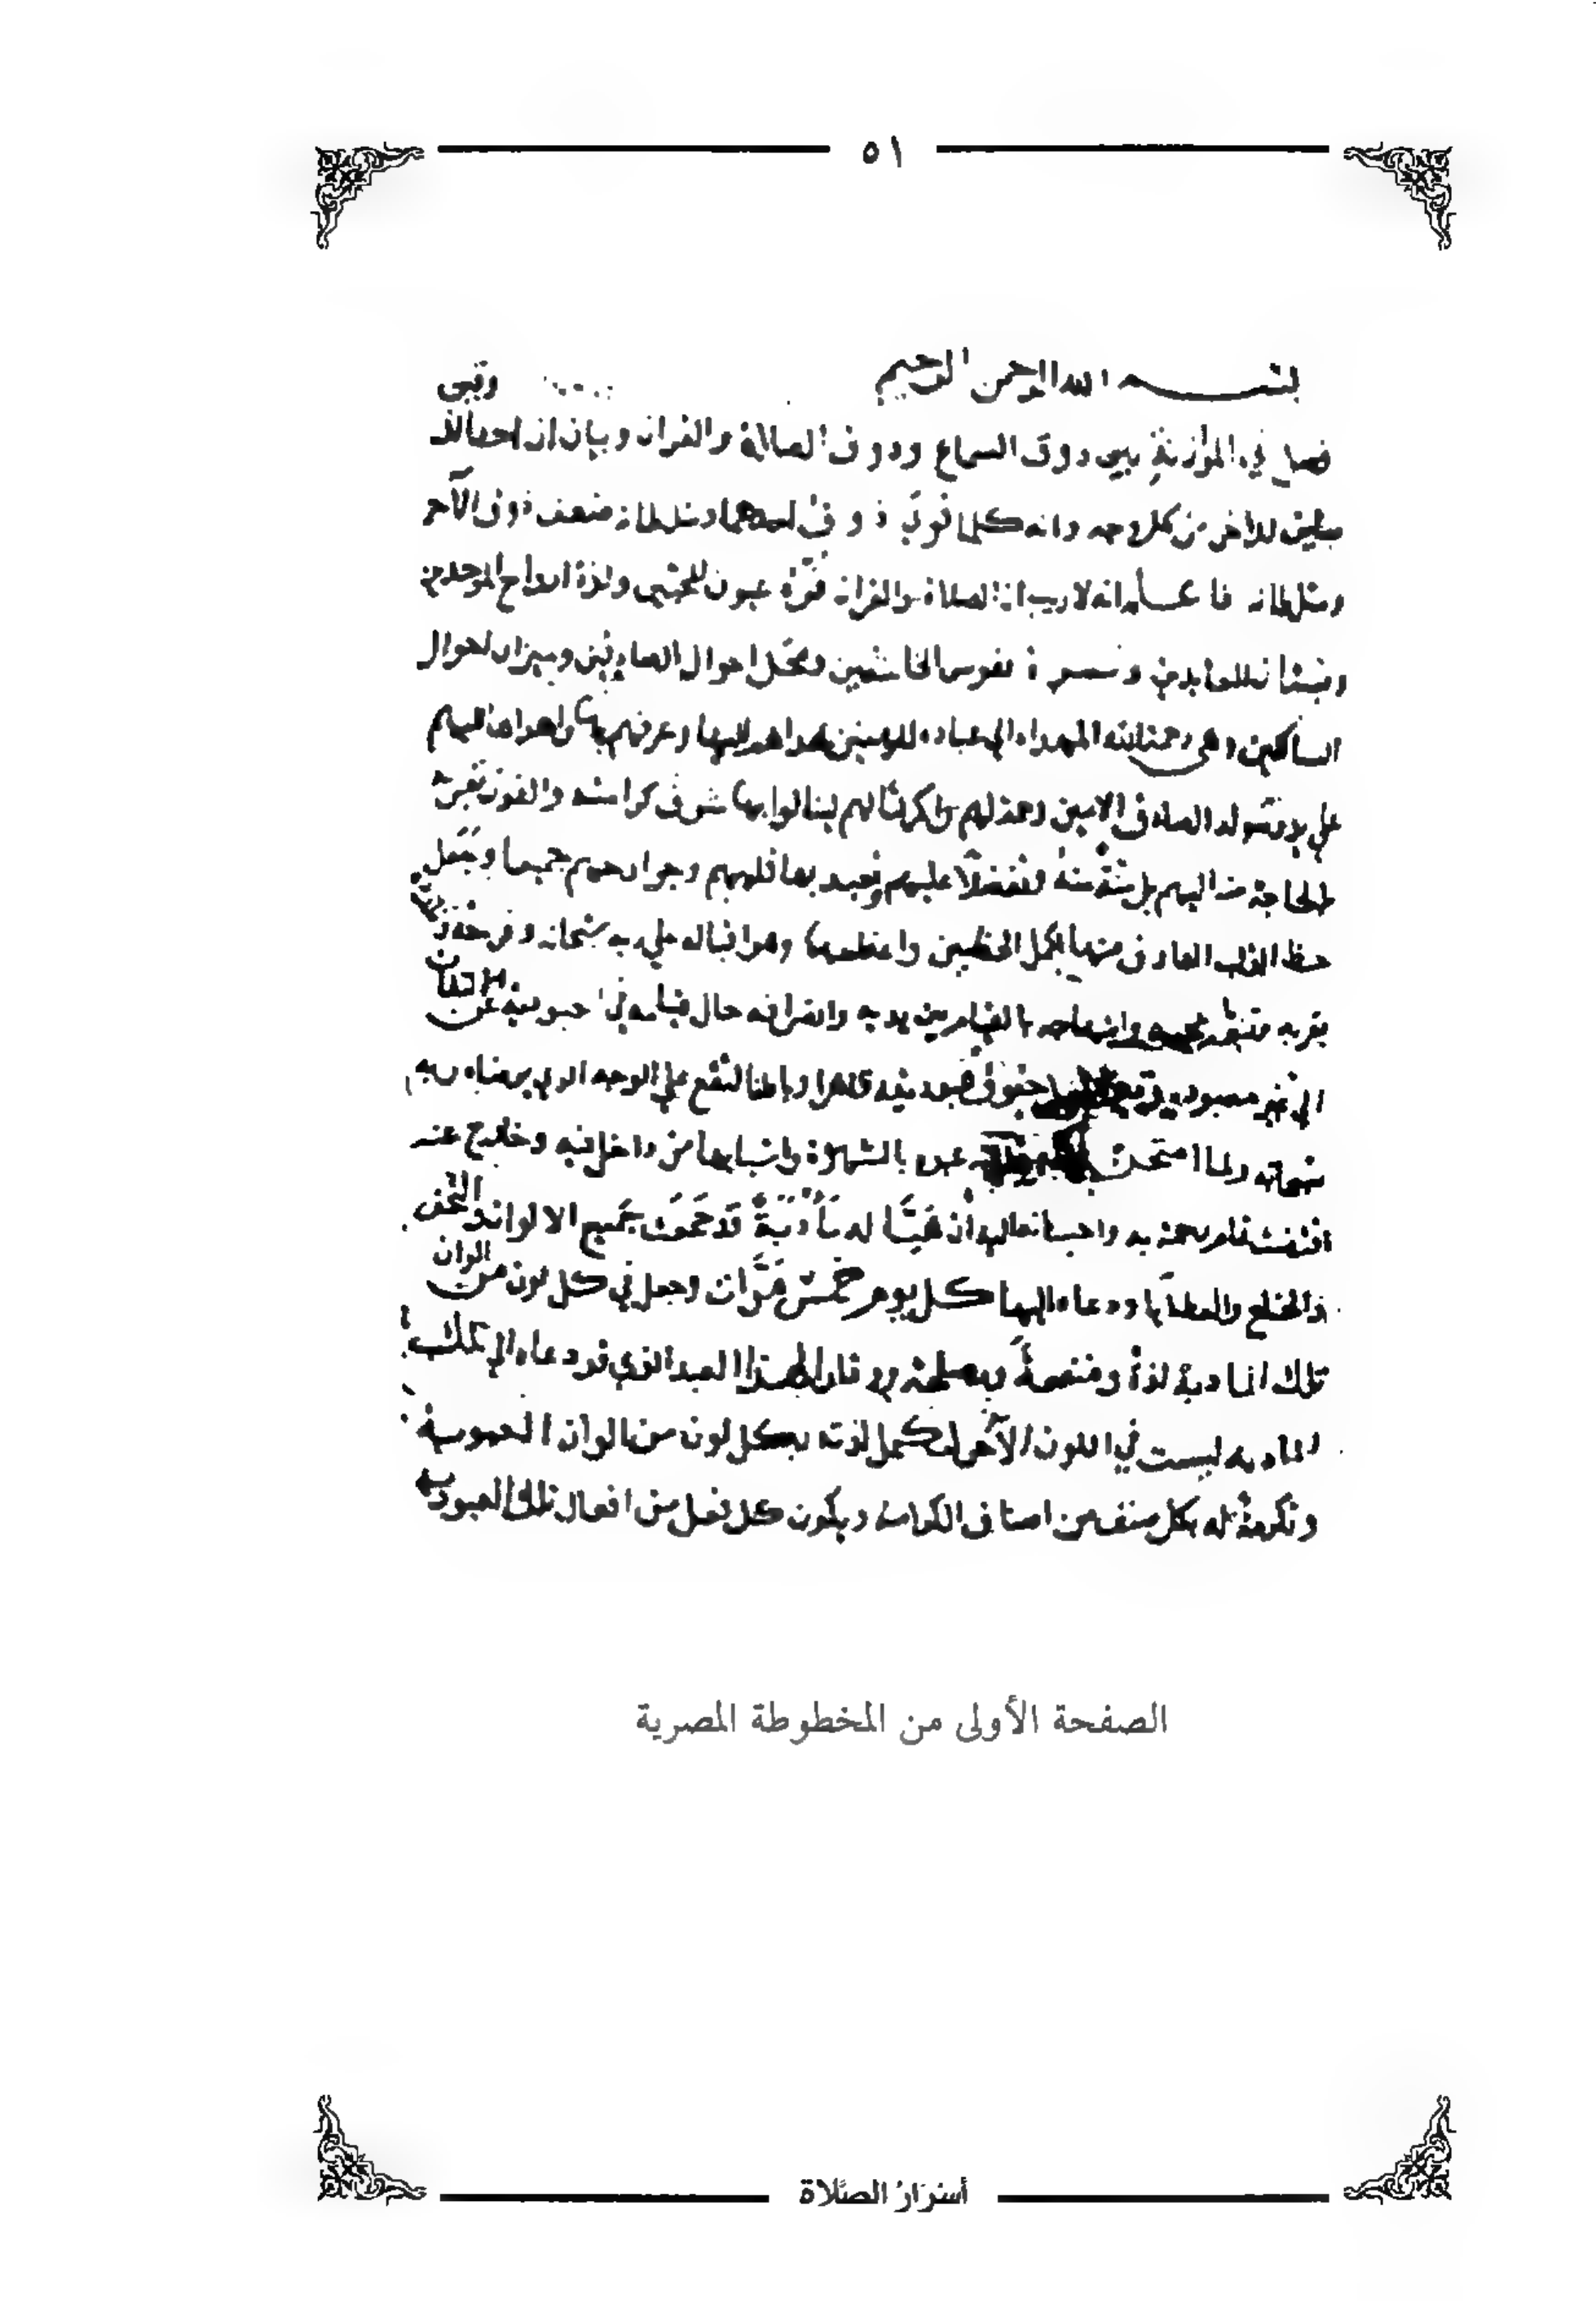 ٥١
بسم الله الرحمن الرحيم
فصل في الموازنة بين ذوق السماع وذوق الصلاة والقرآن وبيان ان احد
مباين للاخر من كل وجه وانه كلما قوي ذوق احدهما وسلطانه ضعف ذوق الآخر
وسلطانه فاعلم انه لا ريب ان الصلاة والقرآن قرة عيون المحبين ولذة ارواح الموحدين
للعابدين نفوس الخاشعين ومحك احوال الصادقين وميزان احوال
السالكين وهي رحمة الله المهداة الى عباده المومنين هداهم اليها وعرفهم بها واهداها اليهم
على يد رسوله الصادق الامين رحمة لهم واكراما لهم لينالوا بها شرف كرامته والفوز بقربه
لا لحاجة منه اليهم بل منة منه وتفضلا عليهم وتعبد بها قلوبهم وجوارحهم جميعا وجعل
حظ القلب العارف منها اكمل الحظين واعظمها وهو اقباله على ربه سبحانه وفرحه
بقربه وتنعمه بحبه وابتهاجه بالقيام بين يديه وانصرافه حال قيامه في عبوديته عن الالتفات
الى غير معبوده حقوق عبوديته ظاهرا وباطنا لتقع على الوجه الذي يرضاه ربه
سبحانه ولما امتحن عبده بالشهوة واسبابها من داخل فيه وخارج عنه
اقتضت تمام رحمته به واحسانه اليه أن هيأ له مأدبة قد جمعت جميع الالوان والتحف
والخلع والعطايا ودعاه اليها كل يوم خمس مرات وجعل في كل لون من الوان
تلك المادبة لذة ومنفعة ومصلحة ووقار لهذا العبد الذي قد دعاه الى تلك
المادبة ليست في اللون الآخر لتكمل لذته بكل لون من الوان العبودية
وتكرمة له بكل صنف من اصناف الكرامة ويكون كل فعل من افعال تلك العبودية
الصفحة الأولى من المخطوطة المصرية
أسرار الصلاة